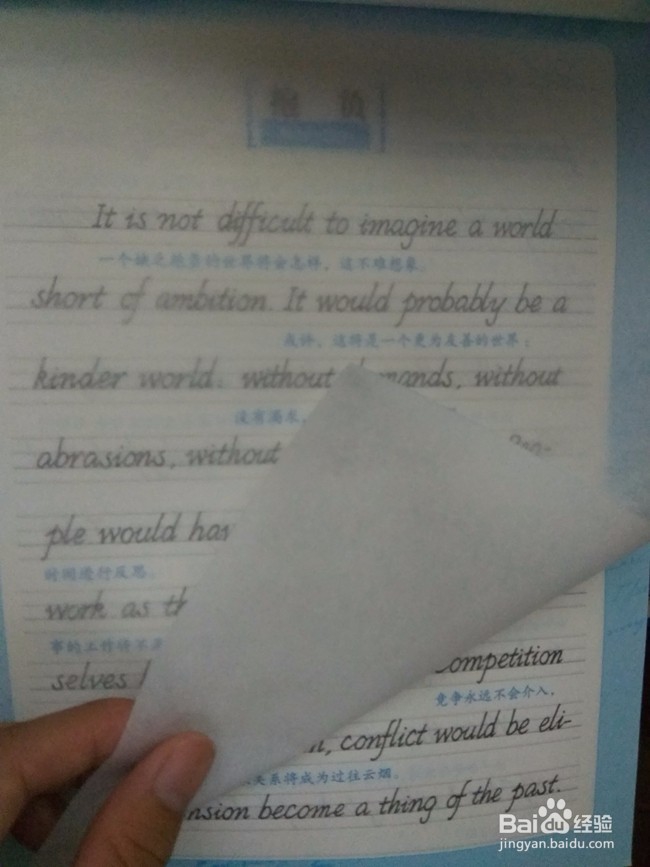 抱 负
It is not difficult to imagine a world
一个缺乏抱负的世界将会怎样，这不难想象。
short of ambition. It would probably be a
或许，这将是一个更为友善的世界：
kinder world: without demands, without
没有需求，
abrasions, without
ple would have
时间进行反思。
work as th
事的工作将不是
selves
competition
竞争永远不会介入。
conflict would be eli-
关系将成为过往云烟。
nsion become a thing of the past.
Baidu经验
jingyan.baidu.com